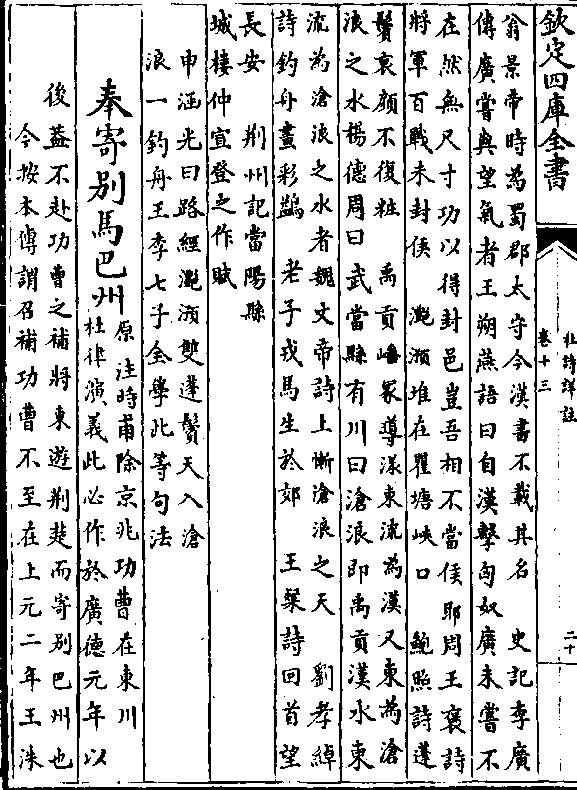 欽定四庫全書
杜詩詳註
卷十三
二十
翁景帝時為蜀郡太守今漢書不載其名　史記李廣
傳廣嘗與望氣者王朔燕語曰自漢擊匈奴廣未嘗不
在然無尺寸功以得封邑豈吾相不當侯耶周王褒詩
將軍百戰未封侯　灔澦堆在瞿塘峽口　鮑照詩蓬
鬢衰顔不復粧　禹貢嶓冢導漾東流為漢又東為滄
浪之水楊德周曰武當縣有川曰滄浪即禹貢漢水東
流為滄浪之水者魏文帝詩上慚滄浪之天　劉孝綽
詩釣舟畫彩鷁　老子戎馬生於郊　王粲詩回首望
長安　荆州記當陽縣
城樓仲宣登之作賦
申涵光曰路經灔澦雙蓬鬢天入滄
浪一釣舟王李七子全學此等句法
奉寄别馬巴州
原注時甫除京兆功曹在東川
杜律演義此必作於廣德元年以
後葢不赴功曹之補將東遊荆楚而寄别巴州也
今按本傳謂召補功曹不至在上元二年王洙